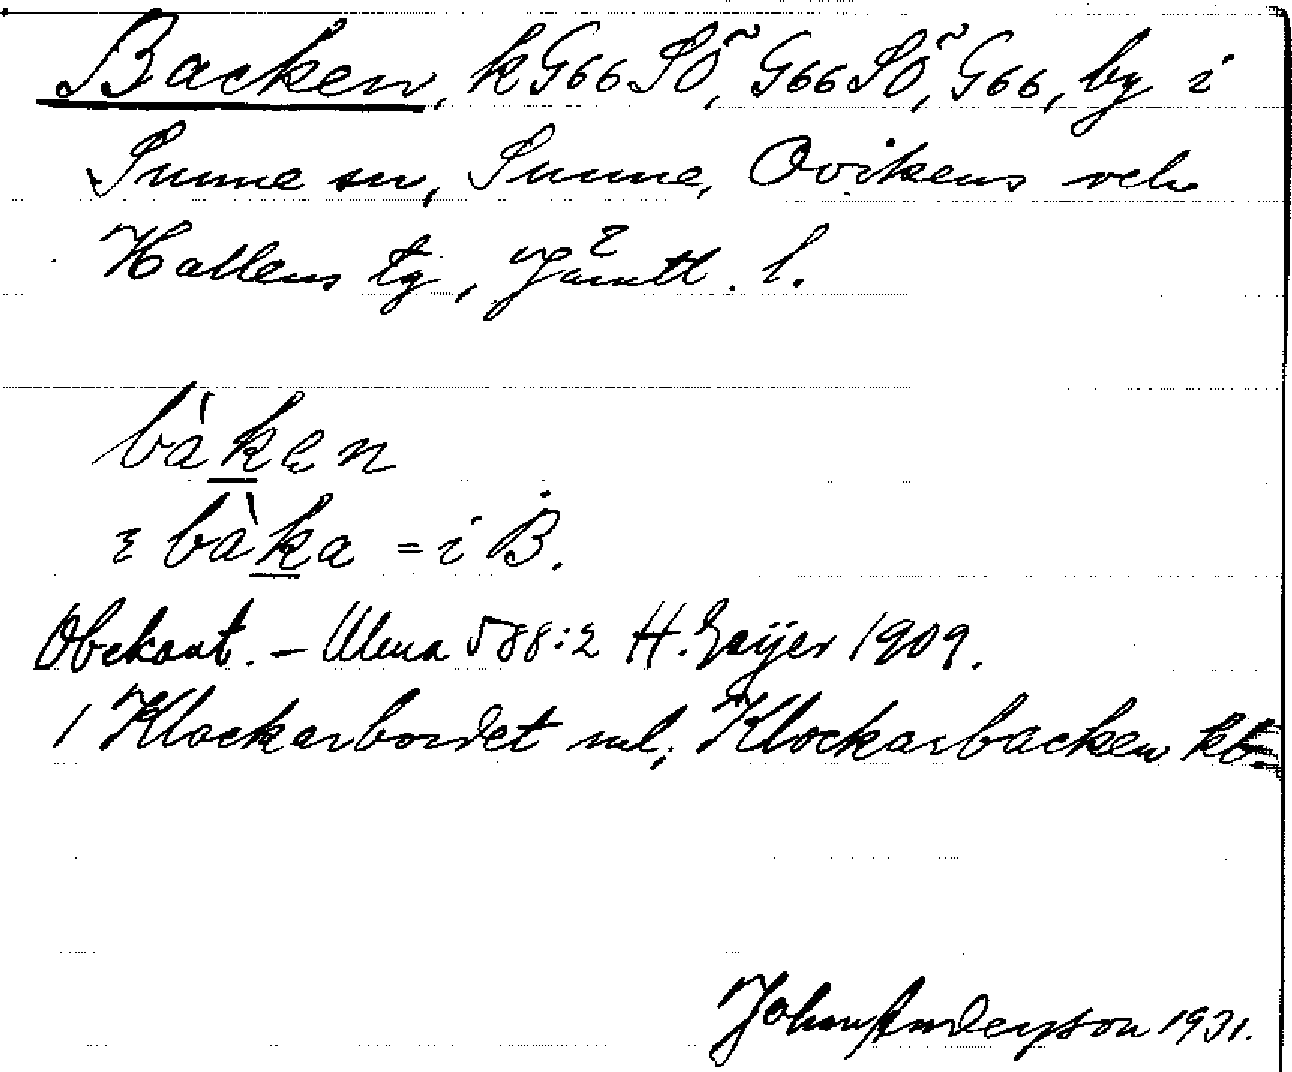 Backen, k G66 SÖ, G66 SÖ, G66, by i
Sunne sn, Sunne, Ovikens och
Hallens tg, Jämtl. l.
bàken
bàka = i B.
Obekant. - Ulma 588:2 H. Geijer 1909.
1 Klockarbordet ml, Klockarbacken
John Andersson 1931.